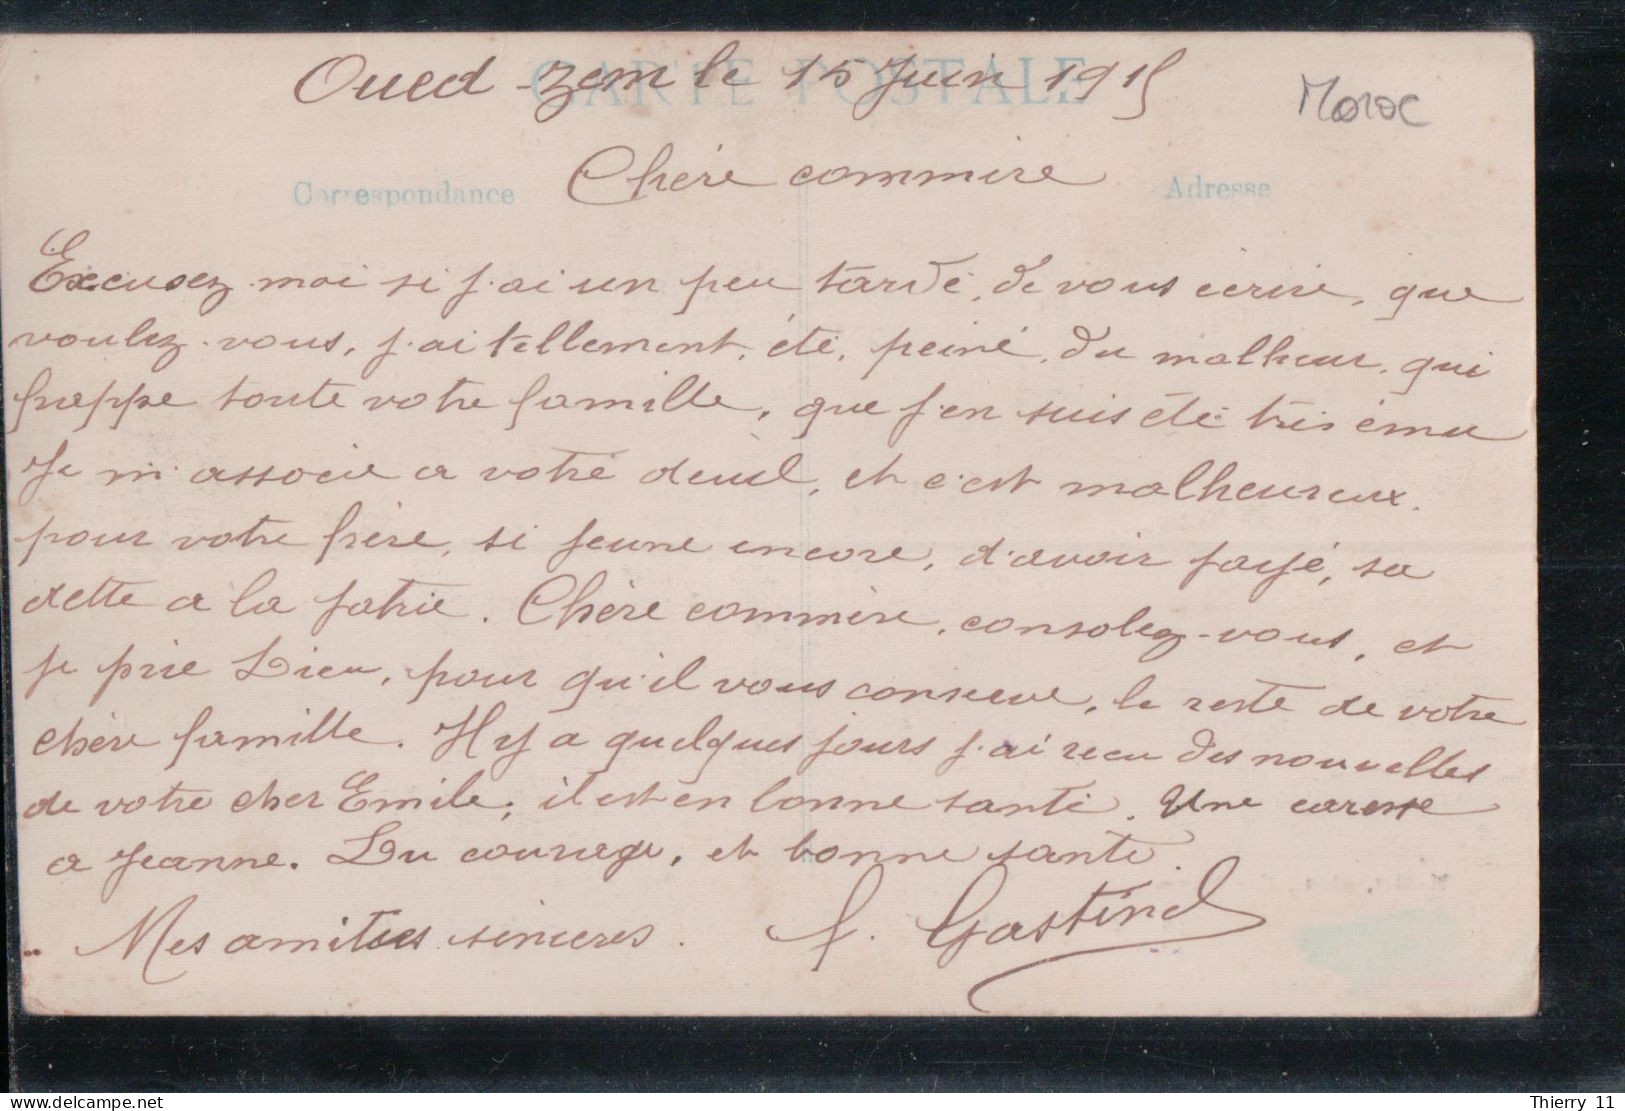 CARTE POSTALE
Oued-zem le 15 Juin 1915
Maroc
Correspondance
Adresse
Chère commère
Excusez moi si j'ai un peu tardé, de vous écrire, que
voulez-vous, j'ai tellement, été, peiné, du malheur, qui
frappe toute votre famille, que j'en suis été très ému
Je m'associe a votre deuil, et c'est malheureux.
pour votre frère, si jeune encore, d'avoir payé, sa
dette a la patrie. Chère commère, consolez-vous, et
je prie Dieu, pour qu'il vous conserve, le reste de votre
chère famille. Il y a quelques jours j'ai recu des nouvelles
de votre cher Emile, il est en bonne santé. Une caresse
a Jeanne. Du courage, et bonne santé.
Mes amitiées sincères. f. Gastinel
Thierry 11